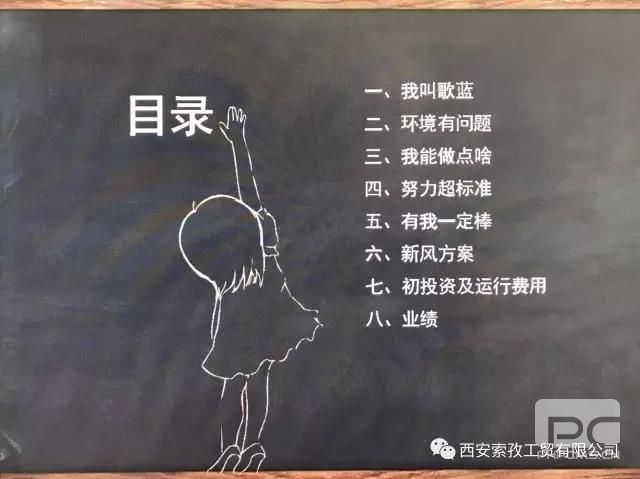 目录
一、我叫歌蓝
二、环境有问题
三、我能做点啥
四、努力超标准
五、有我一定棒
六、新风方案
七、初投资及运行费用
八、业绩
PC
西安索孜工贸有限公司